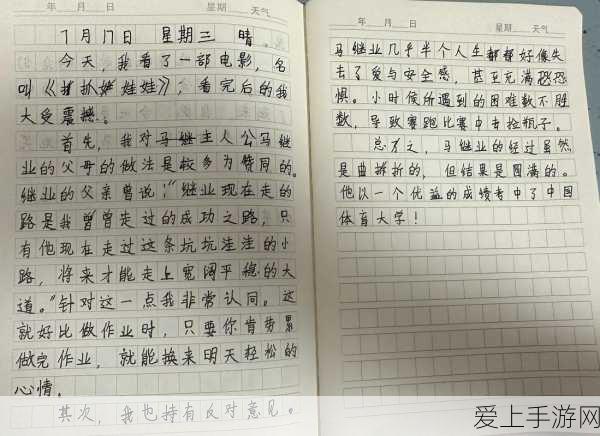 年 月 日 星期 天气
7月17日 星期三 晴。
今天，我看了一部电影，名
叫《抓娃娃》，看完后的我
大受震撼。
首先，我对马继主人公马继
业的父母的做法是较多为赞同的。
继业的父亲曾说："继业现在走的
路是我曾曾走过的成功之路，只
有他现在走过这条坑坑洼洼的小
路，将来才能走上宽阔平稳的大
道。"针对这一点我非常认同。这
就好比做作业时，只要你肯劳累
做完作业，就能换来明天轻松的
心情。
其次，我也持有反对意见。
年 月 日 星期 天气
马继业几乎半个人生都好像失
去了爱与安全感，甚至充满恐恐
惧。小时候所遇到的困难数不胜
数，导致赛跑比赛中去捡瓶子。
总之，马继业的经过虽然
是曲折的，但结果是圆满的。
他以一个优益的成绩考中了中国
体育大学！
爱上手游网